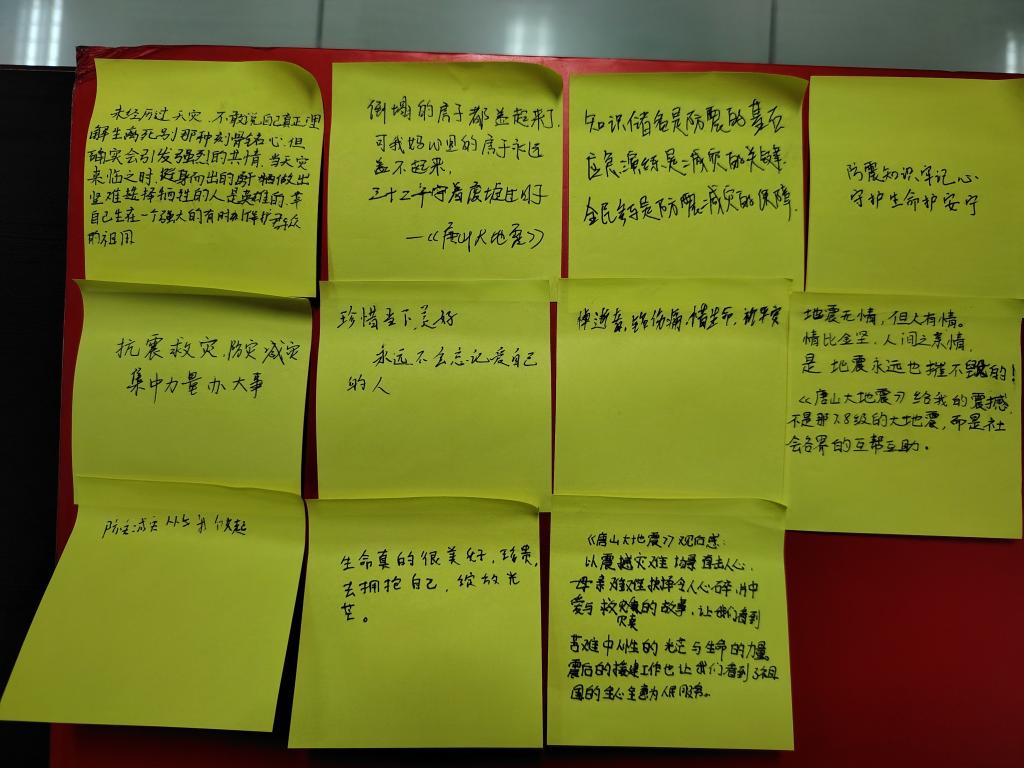 未经历过天灾,不敢说自己真正理
解生离死别那种刻骨铭心.但
确实会引发强烈的共情.当天灾
来临之时,挺身而出的 做出
坚难选择牺牲的人是英雄的.幸
自己生在一个强大的有时刻保护群众
的祖国
倒塌的房子都盖起来了,
可我妈心里的房子永远
盖不起来.
三十二年守着废墟过日子
—《唐山大地震》
知识储备是防震的基石
应急演练是减灾的关键,
全民参与是防震减灾的保障.
防震知识牢记心
守护生命护安宁
抗震救灾,防灾减灾
集中力量办大事
珍惜当下美好
永远不要忘记爱自己
的人
悼逝者,铭伤痛,惜生命,祈平安
地震无情,但人有情。
情比金坚,人间之亲情,
是 地震永远也摧不毁的!
《唐山大地震》给我的震撼,
不是那7.8级的大地震,而是社
会各界的互帮互助。
防震减灾 从我做起
生命真的很美好,珍贵,
去拥抱自己,绽放光
芒。
《唐山大地震》观后感:
以震撼灾难场景直击人心,
母亲难难抉择令人心碎,片中
爱与救灾的故事,让我们看到
灾
苦难中人性的光芒与生命的力量,
震后的援建工作也让我们看到了祖
国的全心全意为人民服务。